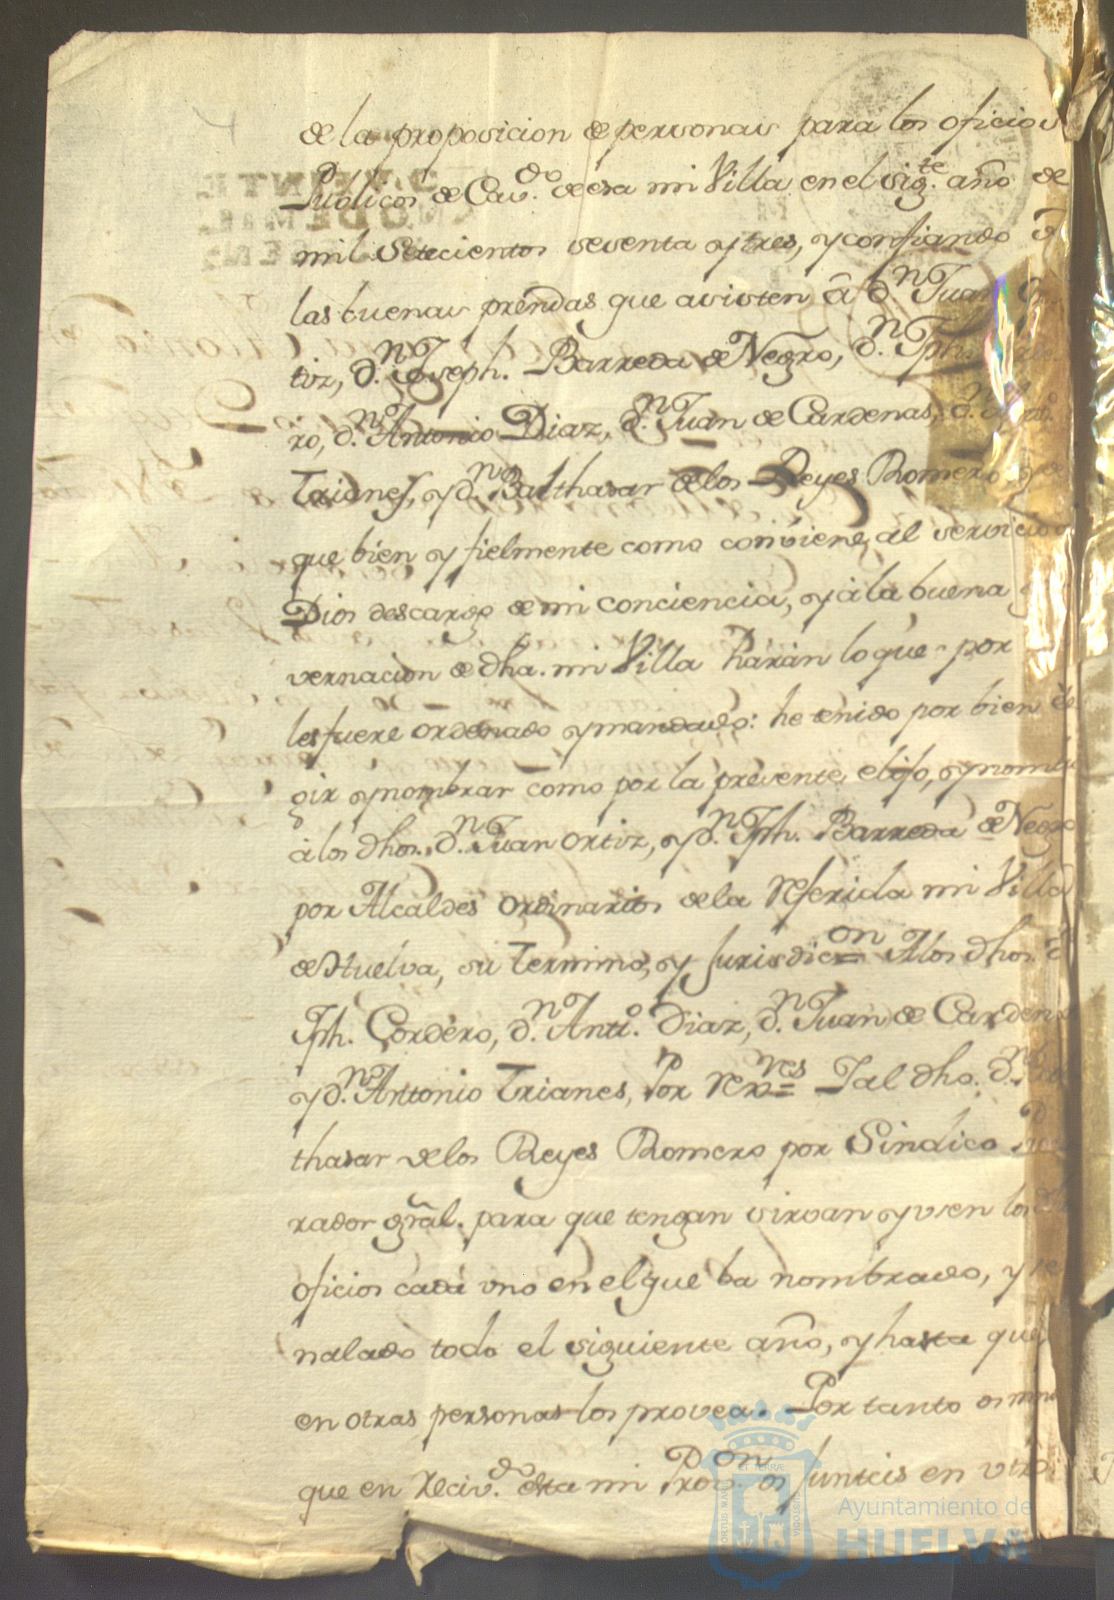 de la proposicion de personas para los oficios
Publicos de Cav.do de esa mi Villa en el sig.te año de
mil Setecientos sesenta y tres, y confiando
las buenas prendas que asisten â d.n Juan
tiz, d.n Joseph. Barreda de Negro, d.n Jph.
ro, d.n Antonio Diaz, d.n Juan de Cardenas, d.n
Trianes, y d.n Balthasar de los Reyes Romero y de
que bien y fielmente como conviene al servicio
Dios descargo de mi conciencia, y à la buena
vernacion de dha. mi Villa haràn lo que por
les fuere ordenado y mandado: he tenido por bien
gir y nombrar como por la presente elijo, y nom
à los dhos. d.n Juan Ortiz, y d.n Jph. Barreda de Negro
por Alcaldes ordinarios de la referida mi Villa
de Huelva, su termino, y Jurisdic.on A los dhos.
Jph. Cordero, d.n Ant.o Diaz, d.n Juan de Carden
y d.n Antonio Trianes, Por rex.res Y al dho. d.n
thasar de los Reyes Romero por Sindico
rador gral. para que tengan sirvan y usen los
oficios cada uno en el que ba nombrado, y
nalado todo el siguiente año, y hasta que
en otras personas los provea. Por tanto os
que en reciv.do esta mi Prov.on os Junteis en
Ayuntamiento de
HUELVA